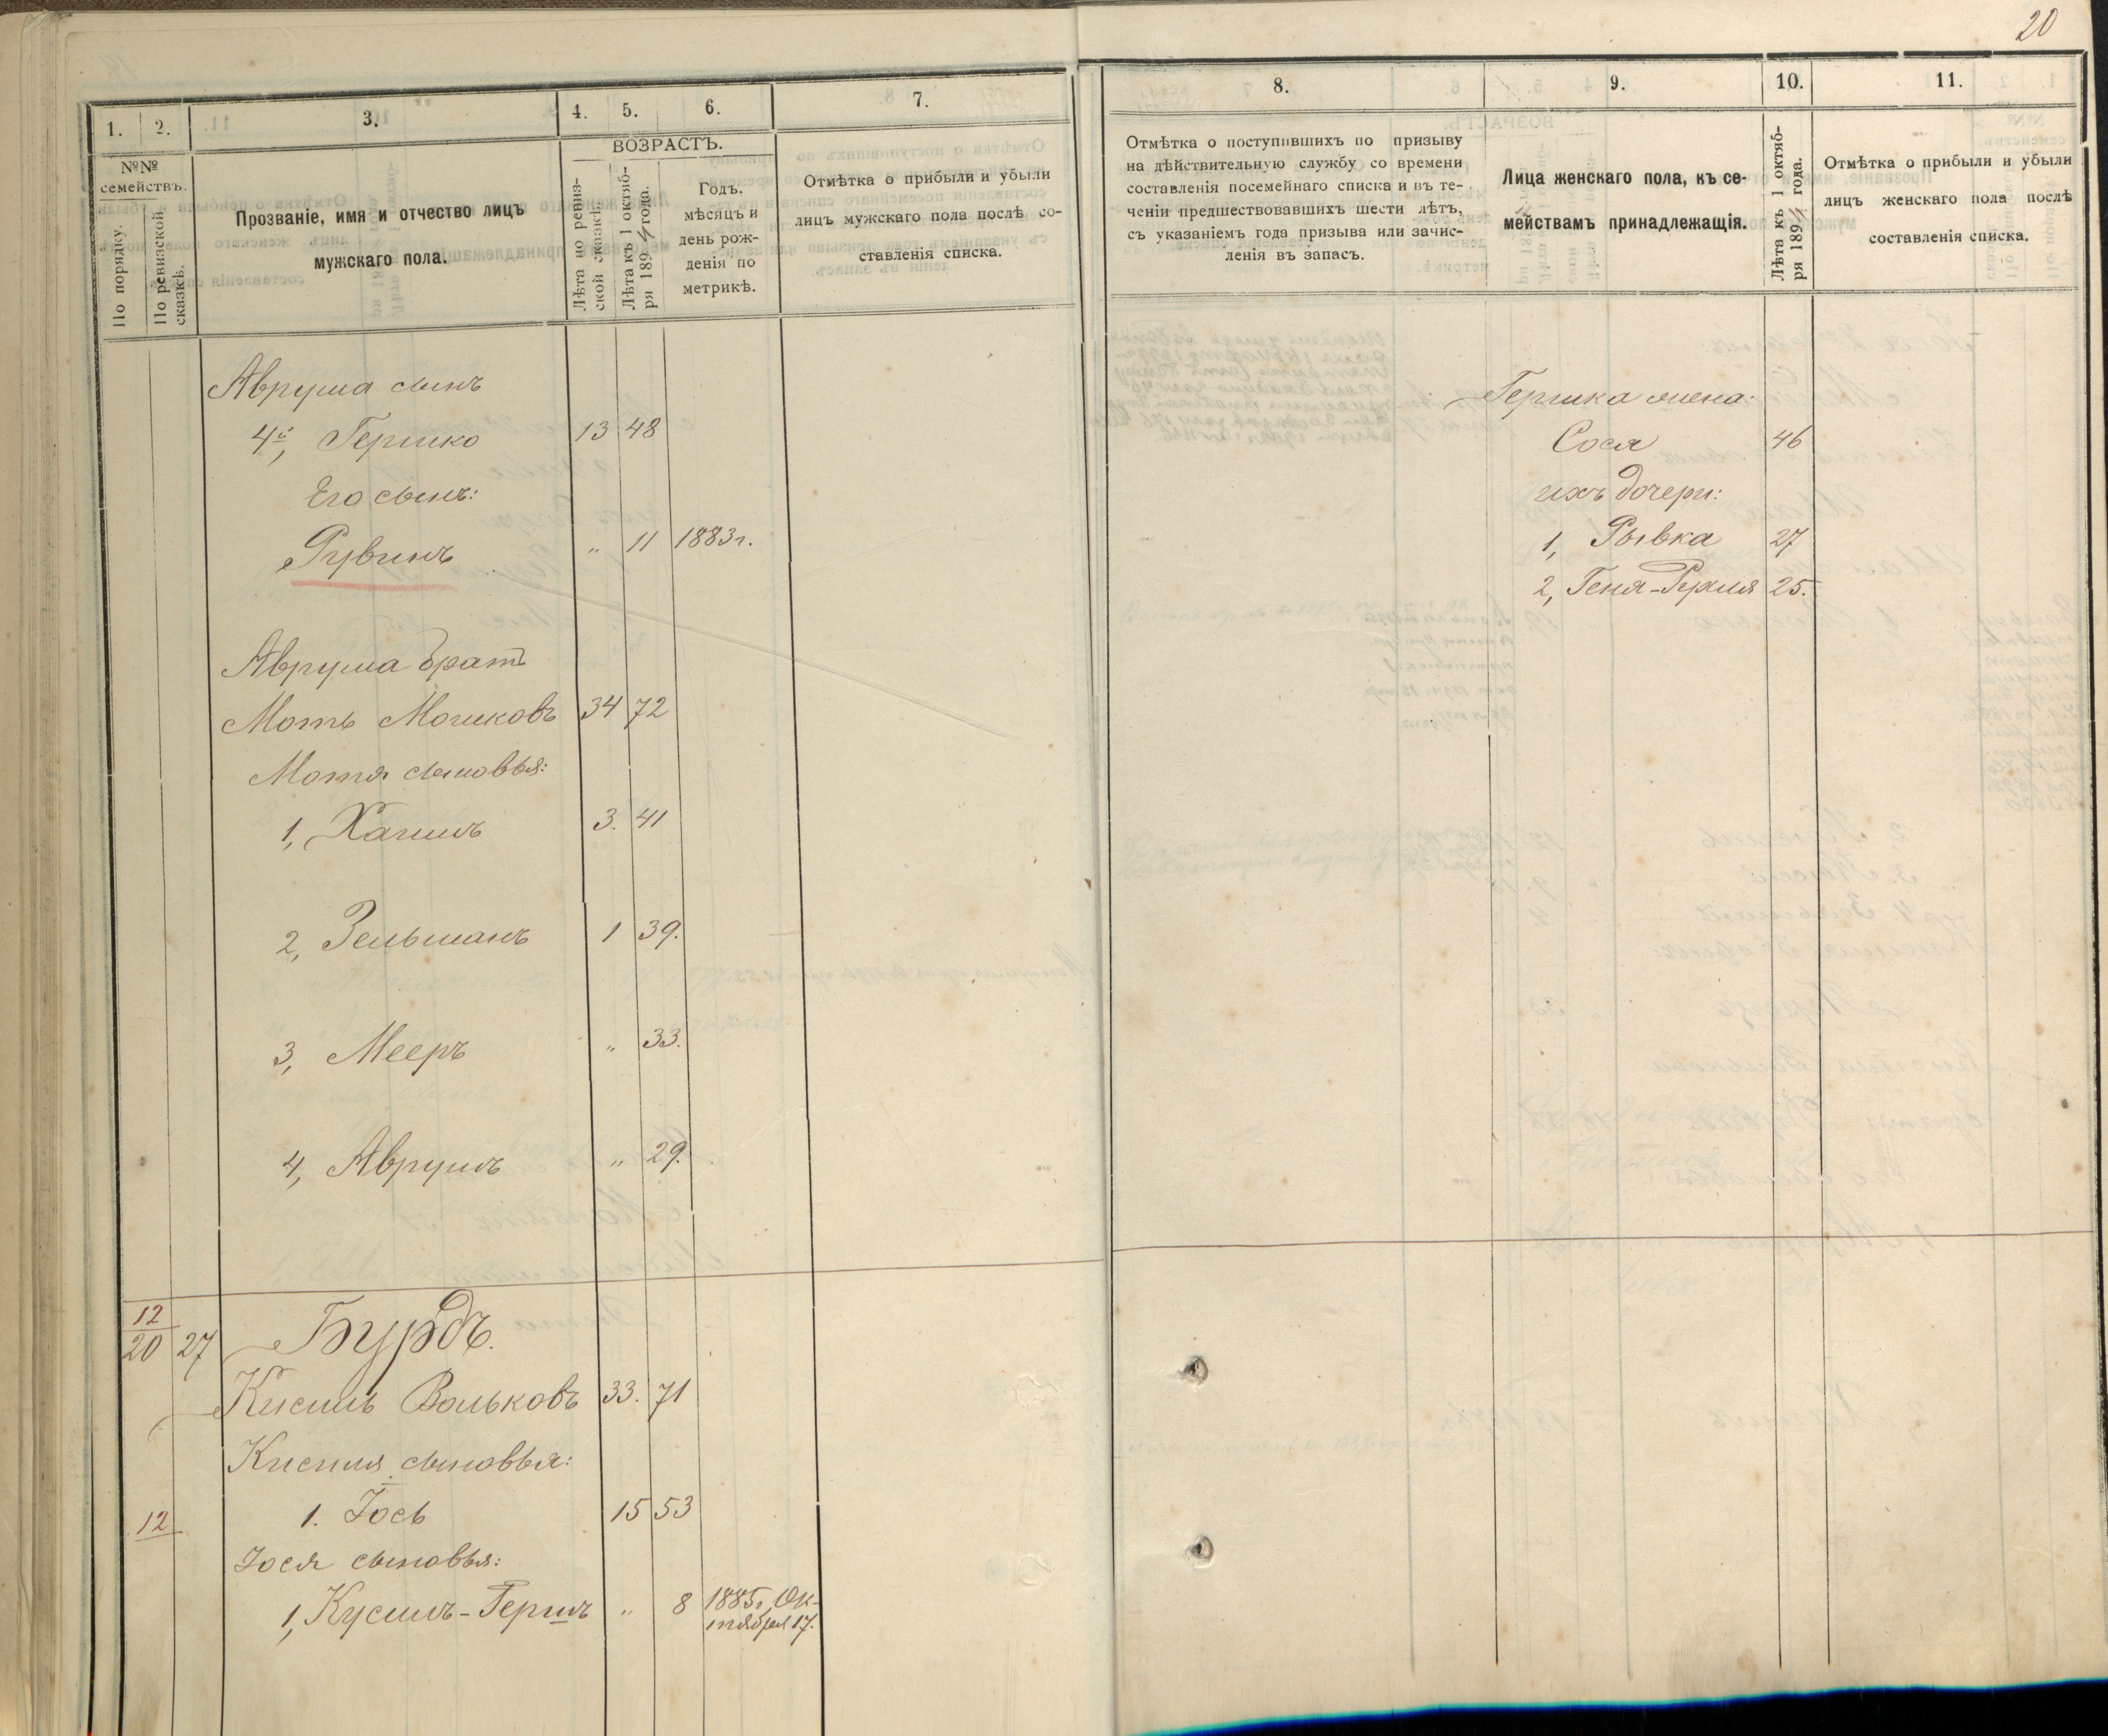 20
1.
2.
3.
4.
5.
6.
7.
№№ семействъ.
По порядку.
По ревизской сказкѣ.
Прозваніе, имя и отчество лицъ
мужскаго пола.
ВОЗРАСТЪ.
Лѣта по ревиз-
ской сказкѣ.
Лѣта къ 1 октяб-
ря 1894 года.
Годъ.
мѣсяцъ и
день рож-
денія по
метрикѣ.
Отмѣтка о прибыли и убыли
лицъ мужскаго пола послѣ со-
ставленія списка.
Аврума сынъ
4й, Гершко 13 48
Его сынъ:
Рувинъ " 11 1883г.
Аврума братъ
Моть Мошковъ 34 72
Мотя сыновья:
1, Хаимъ 3. 41
2, Зельманъ 1 39.
3, Мееръ " 33.
4, Аврумъ " 29.
12
20 27 Бурдъ.
Кисиль Вольковъ 33. 71
Кисиля сыновья:
12 1. Іось 15 53
Іося сыновья:
1, Кусиль-Гершъ " 8 1885г. Ок-
тября 17.
8.
9.
10.
11.
Отмѣтка о поступившихъ по призыву
на дѣйствительную службу со времени
составленія посемейнаго списка и въ те-
ченіи предшествовавшихъ шести лѣтъ,
съ указаніемъ года призыва или зачис-
ленія въ запасъ.
Лица женскаго пола, къ се-
мействамъ принадлежащія.
Лѣта къ 1 октяб-
ря 1894 года.
Отмѣтка о прибыли и убыли
лицъ женскаго пола послѣ
составленія списка.
Гершка жена:
Сося 46
ихъ дочери:
1, Рывка 27
2, Геня-Рухля 25.